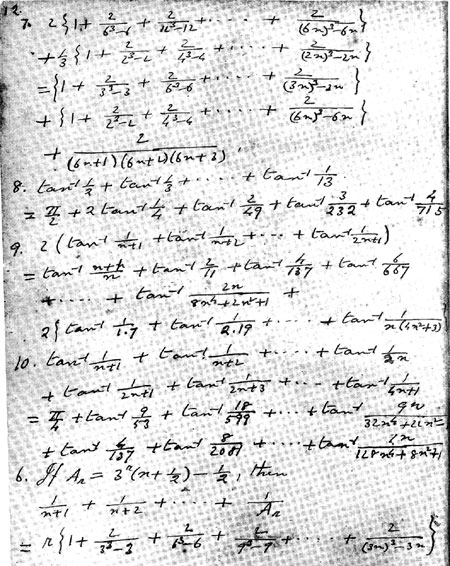 12
7. 2{1 + 2/(6³-6) + 2/(12³-12) + ..... + 2/((6n)³-6n)}
+ 1/3 {1 + 2/(2³-2) + 2/(4³-4) + ..... + 2/((2n)³-2n)}
= {1 + 2/(3³-3) + 2/(6³-6) + ..... + 2/((3n)³-3n)}
+ {1 + 2/(2³-2) + 2/(4³-4) + ..... + 2/((6n)³-6n)}
+ 2/((6n+1)(6n+2)(6n+3)).
8. tan⁻¹ 1/2 + tan⁻¹ 1/3 + ..... + tan⁻¹ 1/13.
= π/2 + 2 tan⁻¹ 1/4 + tan⁻¹ 2/49 + tan⁻¹ 3/232 + tan⁻¹ 4/715
9. 2(tan⁻¹ 1/(n+1) + tan⁻¹ 1/(n+2) + ... + tan⁻¹ 1/(2n+1))
= tan⁻¹ + tan⁻¹ 2/11 + tan⁻¹ 4/137 + tan⁻¹ 6/667
+ ..... + tan⁻¹ 2n/(8n⁴+2n²+1) +
2{tan⁻¹ 1/1.7 + tan⁻¹ 1/2.19 + ..... + tan⁻¹ 1/(n(4n²+3))
10. tan⁻¹ 1/(n+1) + tan⁻¹ 1/(n+2) + ..... + tan⁻¹ 1/2n
+ tan⁻¹ 1/(2n+1) + tan⁻¹ 1/(2n+3) + ... + tan⁻¹ 1/(4n+1)
= π/4 + tan⁻¹ 9/53 + tan⁻¹ 18/599 + ... + tan⁻¹ 9n/(32n⁴+22n²-
+ tan⁻¹ 4/137 + tan⁻¹ 8/2081 + ..... + tan⁻¹ /(128n⁴+8n²+1)
6. If Aₙ = 3ⁿ(n+1/2) - 1/2, then
1/(n+1) + 1/(n+2) + ..... + 1/Aₙ
= n{1 + 2/(3³-3) + 2/(6³-6) + 2/(9³-9) + ..... + 2/((3n)³-3n)}